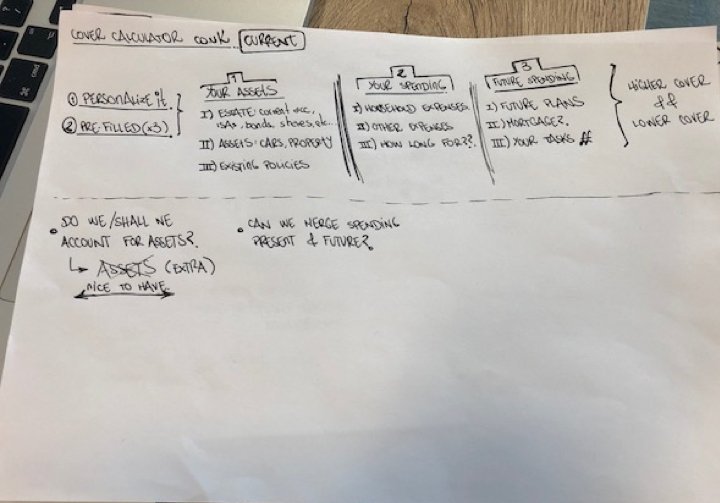 COVER CALCULATOR CONK CURRENT
① PERSONALIZE it
② PRE FILLED (x3)
1
YOUR ASSETS
I) ESTATE: current acc,
ISAs, bonds, shares, etc..
II) ASSETS: CARS, PROPERTY
III) EXISTING POLICIES
2
YOUR SPENDING
I) HOUSEHOLD EXPENSES.
II) OTHER EXPENSES
III) HOW LONG FOR??.
3
FUTURE SPENDING
I) FUTURE PLANS
II) MORTGAGE?.
III) YOUR TASKS #
HIGHER COVER
&
LOWER COVER
• DO WE/SHALL WE
ACCOUNT FOR ASSETS?.
↳ ASSETS (EXTRA)
NICE TO HAVE.
• CAN WE MERGE SPENDING
PRESENT & FUTURE?
cmd